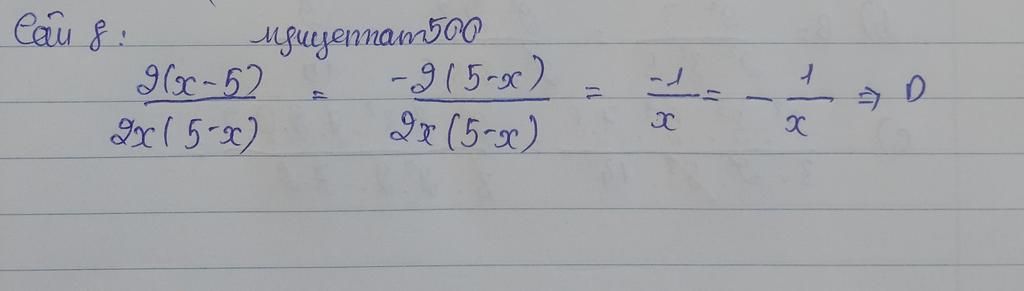 Câu 8: nguyennam500
2(x-5)/2x(5-x) = -2(5-x)/2x(5-x) = -1/x = -1/x ⇒ D